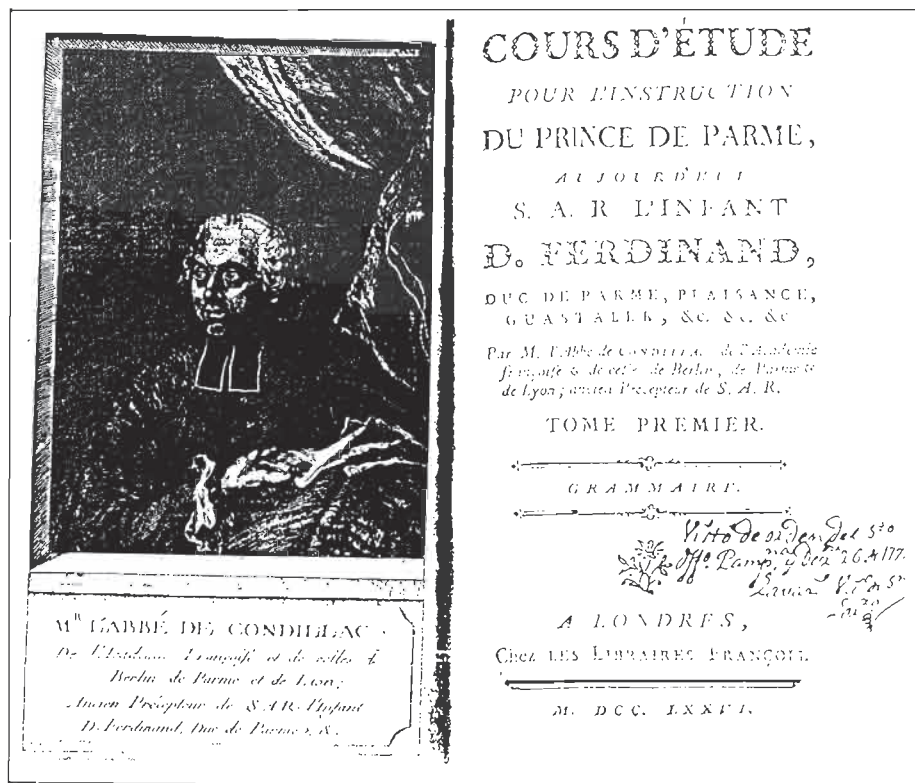 MR. L'ABBÉ DE CONDILLAC
De l'Académie Françoise et de celles de
Berlin de Parme et de Lion;
Ancien Précepteur de S. A. R. l'Infant
D. Ferdinand, Duc de Parme, &.
COURS D'ÉTUDE
POUR L'INSTRUCTION
DU PRINCE DE PARME,
AUJOURD'HUI
S. A. R L'INFANT
D. FERDINAND,
DUC DE PARME, PLAISANCE,
GUASTALLE, &c. &c. &c
Par M. l'Abbé de CONDILLAC de l'Académie
françoise & de celles de Berlin, de Parme &
de Lyon; ancien Précepteur de S. A. R.
TOME PREMIER.
GRAMMAIRE.
Visto de orden del Sto
Offo. Pamp
A LONDRES,
Chez LES LIBRAIRES FRANÇOIS.
M. DCC. LXXVI.